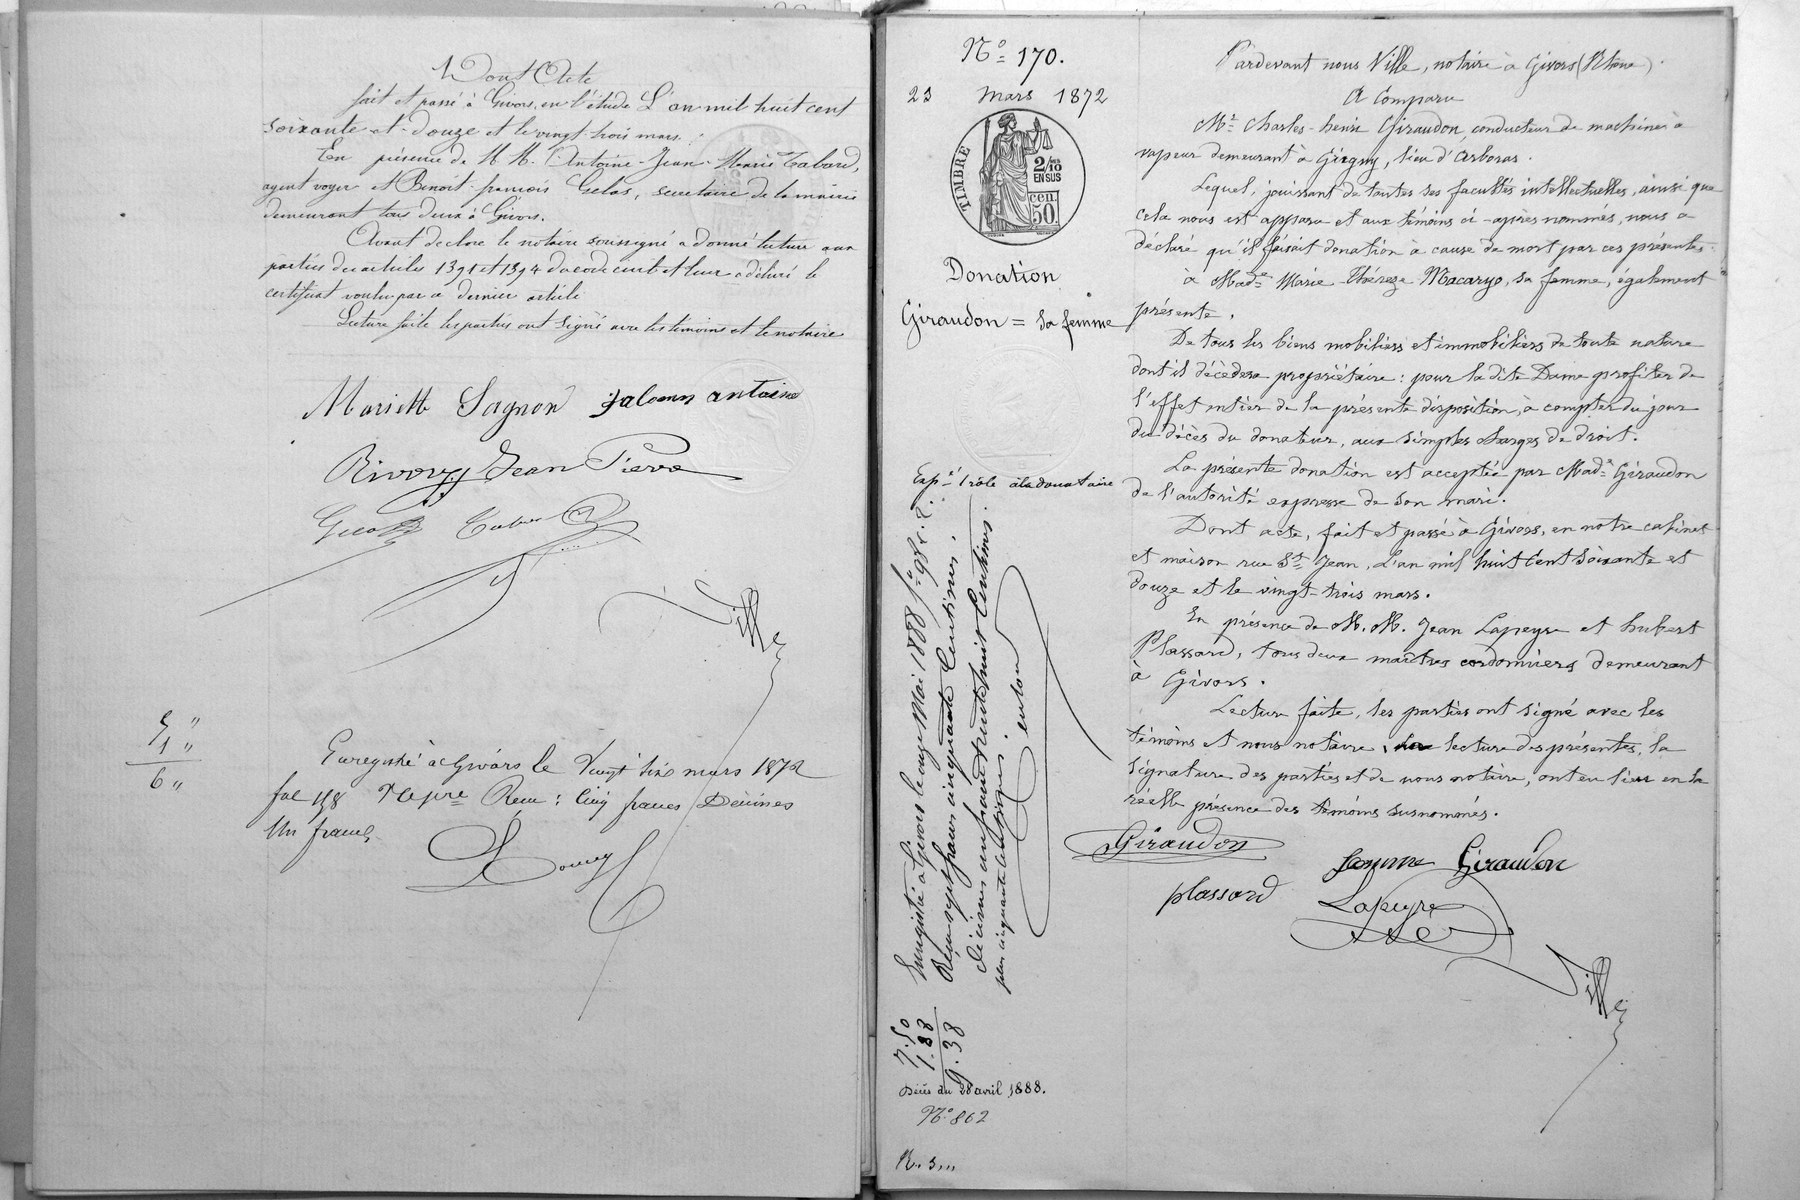 Dont Acte
fait et passé à Givors, en l'étude L'an mil huit cent
soixante et douze et le vingt trois mars.
En présence de M M. Antoine Jean Marie Tabard,
agent voyer et Benoit françois Gelas, secrétaire de la mairie
demeurant tous deux à Givors.
Avant de clore le notaire soussigné a donné lecture aux
parties des articles 1391 et 1394 du code civil et leur a délivré le
certificat voulu par ce dernier article
Lecture faite les parties ont signé avec les témoins et le notaire
Mariette Sagnon jalamn antoine
Rivory Jean Pierre
Gelas Tabard
Ville
5 "
1 "
6 "
Enregistré à Givors le Vingt six mars 1872
fol 158 Reçu : Cinq francs Décimes
Un franc
N° 170.
23 mars 1872
TIMBRE
2/10
EN SUS
cen.
50
Donation
Giraudon = sa femme
Exp.é 1 role à la donataire
Enregistré à Givors le onze Mai 1888 f° 95 c. 2.
Reçu sept francs cinquante Centimes.
décimes un franc quatre vingt huit Centimes.
7.50
1.88
9.38
Décès du 28 avril 1888.
N° 862
Pardevant nous Ville, notaire à Givors (Rhône)
A Comparu
Mr Charles-henri Giraudon, conducteur de machines à
vapeur demeurant à Grigny, lieu d'Arboras.
Lequel, jouissant de toutes ses facultés intellectuelles, ainsi que
cela nous est apparu et aux témoins ci-après nommés, nous a
déclaré qu'il faisait donation à cause de mort par ces présentes
à Made Marie Thérèze Macaryo, sa femme, également
présente.
De tous les biens mobiliers et immobiliers de toute nature
dont il décèdera propriétaire : pour la dite Dame profiter de
l'effet entier de la présente disposition, à compter du jour
du décès du donateur, aux simples charges de droit.
La présente donation est acceptée par Made Giraudon
de l'autorité expresse de son mari.
Dont acte, fait et passé à Givors, en notre cabinet
et maison rue St Jean, L'an mil huit Cent soixante et
douze et le vingt-trois mars.
En présence de M. M. Jean Lapeyre et hubert
Plassard, tous deux maîtres cordonniers demeurant
à Givors.
Lecture faite, les parties ont signé avec les
témoins et nous notaire, lecture des présentes, la
signature des parties et de nous notaire, ont eu lieu en la
réelle présence des témoins susnommés.
Giraudon
femme Giraudon
plassard
Lapeyre
Ville